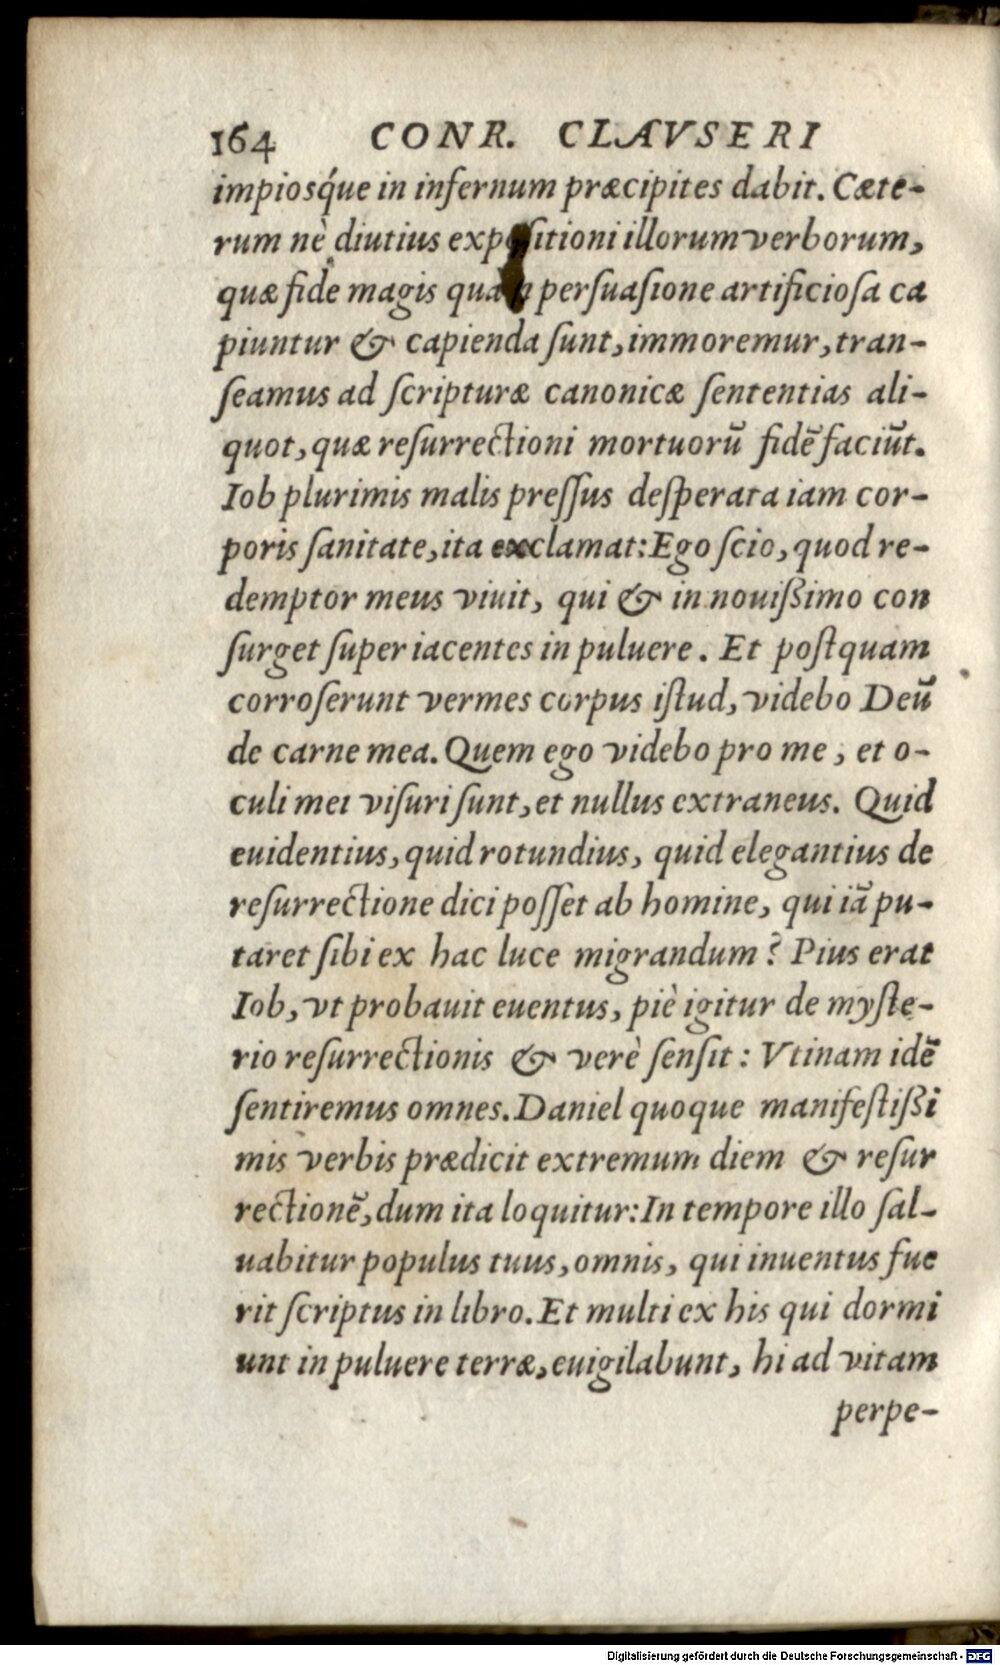 164 CONR. CLAVSERI
impiosq́ue in infernum præcipites dabit. Cæte-
rum nè diutius expoſitioni illorum verborum,
quæ fide magis quam perſuaſione artificioſa ca
piuntur & capienda ſunt, immoremur, tran-
ſeamus ad ſcripturæ canonicæ ſententias ali-
quot, quæ reſurrectioni mortuorū fidē faciūt.
Iob plurimis malis preſſus deſperata iam cor-
poris ſanitate, ita exclamat: Ego ſcio, quod re-
demptor meus viuit, qui & in nouißimo con
ſurget ſuper iacentes in puluere. Et poſtquam
corroſerunt vermes corpus iſtud, videbo Deū
de carne mea. Quem ego videbo pro me, et o-
culi mei viſuri ſunt, et nullus extraneus. Quid
euidentius, quid rotundius, quid elegantius de
reſurrectione dici poſſet ab homine, qui iā pu-
taret ſibi ex hac luce migrandum? Pius erat
Iob, vt probauit euentus, piè igitur de myſte-
rio reſurrectionis & verè ſenſit: Vtinam idē
ſentiremus omnes. Daniel quoque manifeſtißi
mis verbis prædicit extremum diem & reſur
rectionē, dum ita loquitur: In tempore illo ſal-
uabitur populus tuus, omnis, qui inuentus fue
rit ſcriptus in libro. Et multi ex his qui dormi
unt in puluere terræ, euigilabunt, hi ad vitam
perpe-
Digitalisierung gefördert durch die Deutsche Forschungsgemeinschaft - DFG